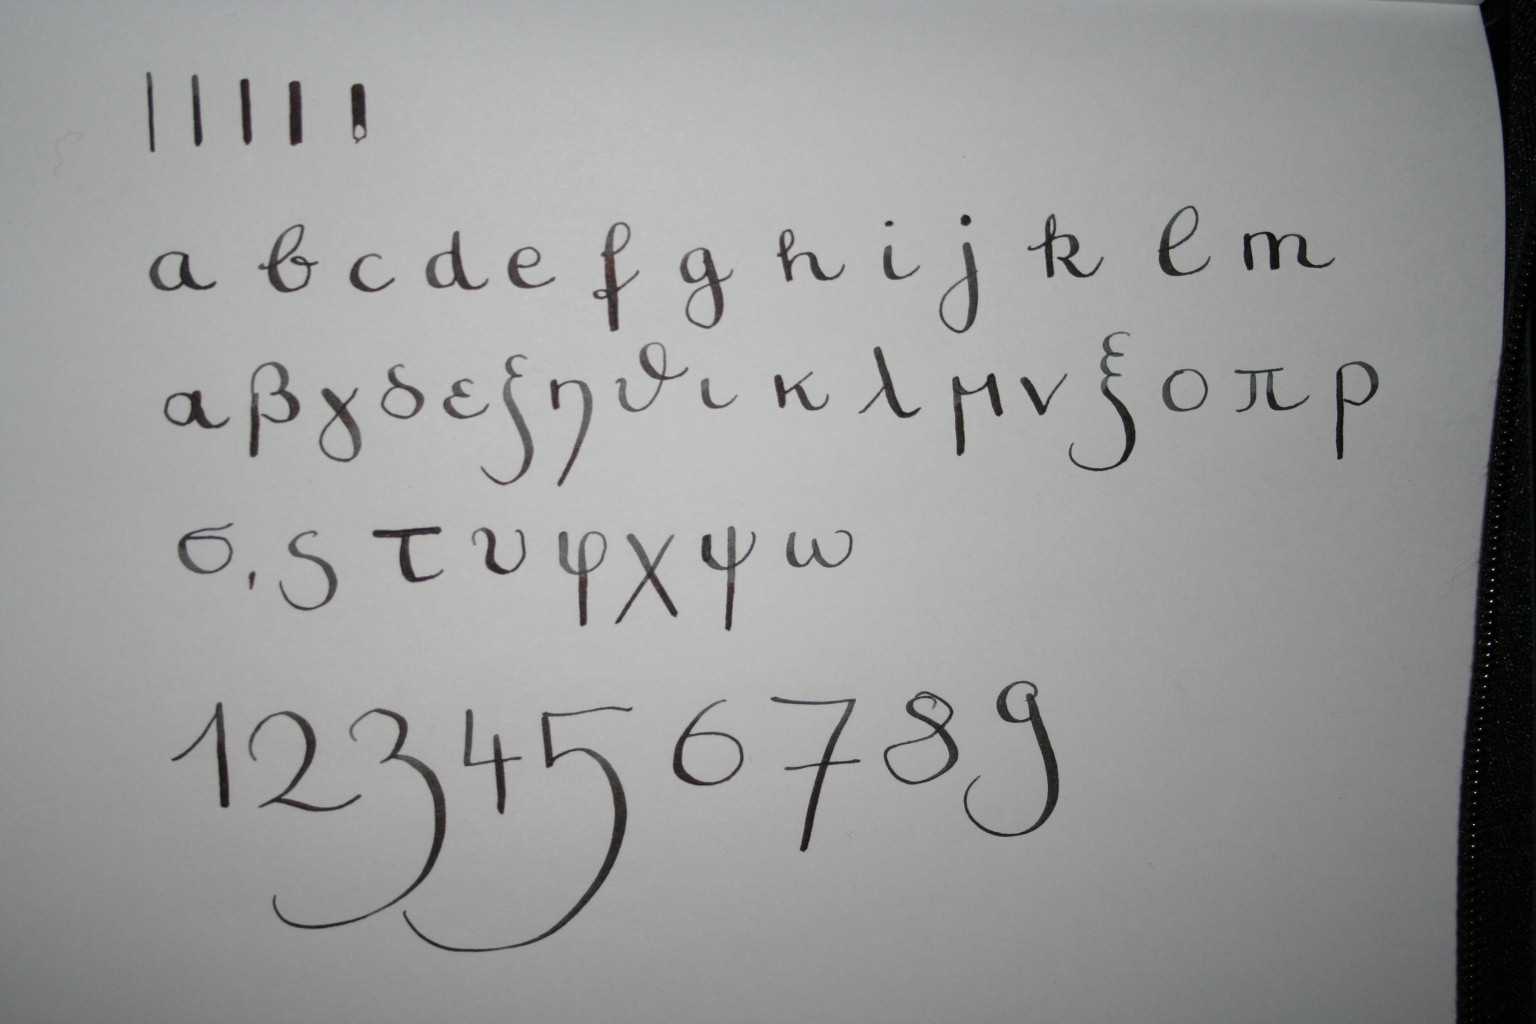 a b c d e f g h i j k l m
α β γ δ ε ζ η θ ι κ λ μ ν ξ ο π ρ
σ, ς τ υ φ χ ψ ω
1 2 3 4 5 6 7 8 9